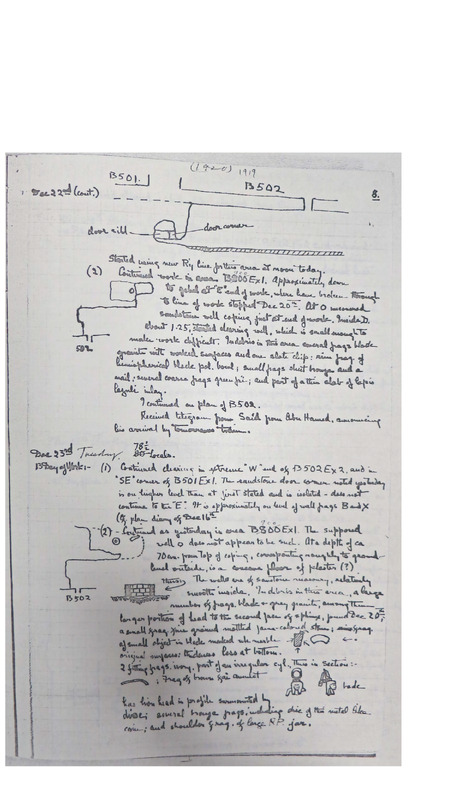 (1920) 1919
8.
B501.
B502
Dec 22nd (cont.)
door sill
door corner
Started using new Ry line for this area at noon today.
(2) Continued work in area B800 Ex1. Approximately down
to gebel at end of work, where have broken through
to line of work stopped Dec 20th. At O uncovered
sandstone well coping just at end of work. Inside D.
502
about 1.25, started clearing well, which is small enough to
make work difficult. In debris in this area several frags black
granite with worked surfaces and one slate chip; rim frag of
hemispherical black pol. bowl; small frags sheet bronze and a
nail; several coarse frags green fai; and part of a thin slab of lapis
lazuli inlay.
I continued on plan of B502.
Received telegram from Said from Abu Hamed, announcing
his arrival by tomorrows train.
Dec 23rd Tuesday
78
80 locals.
13 Day of Work:-
(1) Continued clearing in extreme "W" end of B502 Ex2, and in
"SE" corner of B501 Ex1. The sandstone door corner noted yesterday
is on higher level than at first stated and is isolated - does not
continue to the "E". It is approximately on level of wall frags B and X
(cf. plan diary of Dec 16th
(2) Continued as yesterday in area B800 Ex1. The supposed
well O does not appear to be such. At a depth of ca
70cm. from top of coping, corresponding roughly to ground
level outside, is a concave floor of plaster (?)
B502
The walls are of sandstone masonry, relatively
smooth inside. In debris in this area, a large
number of frags. black + gray granite, among them
longer portion of lead to the second paw of sphinx, found Dec 20th;
a small frag. fine ground mottled
of small object in black
original surfaces
2 frags. ivory, part of an irregular cyl., thus in section:-
; Frag of brown fai amulet
has lion head in profile surmounted by
disc; several bronze frags, including one of the metal
; and shoulder frag. of large RP jar.